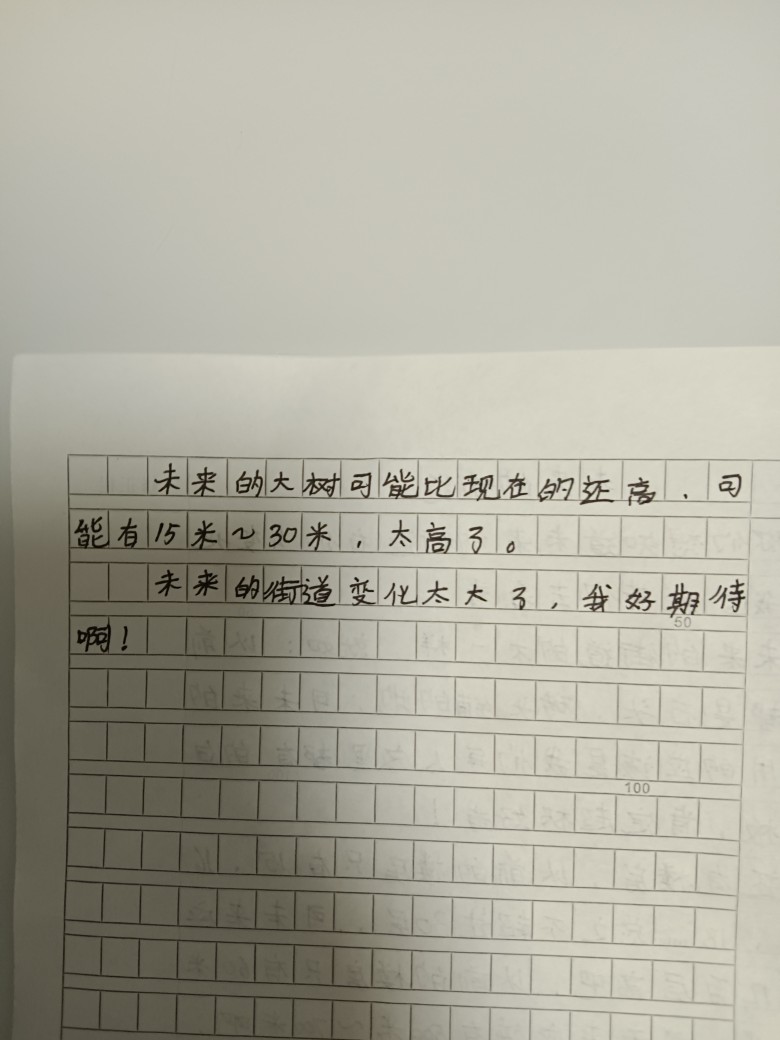 未来的大树可能比现在的还高，可
能有15米~30米，太高了。
未来的街道变化太大了，我好期待
50
啊！
100